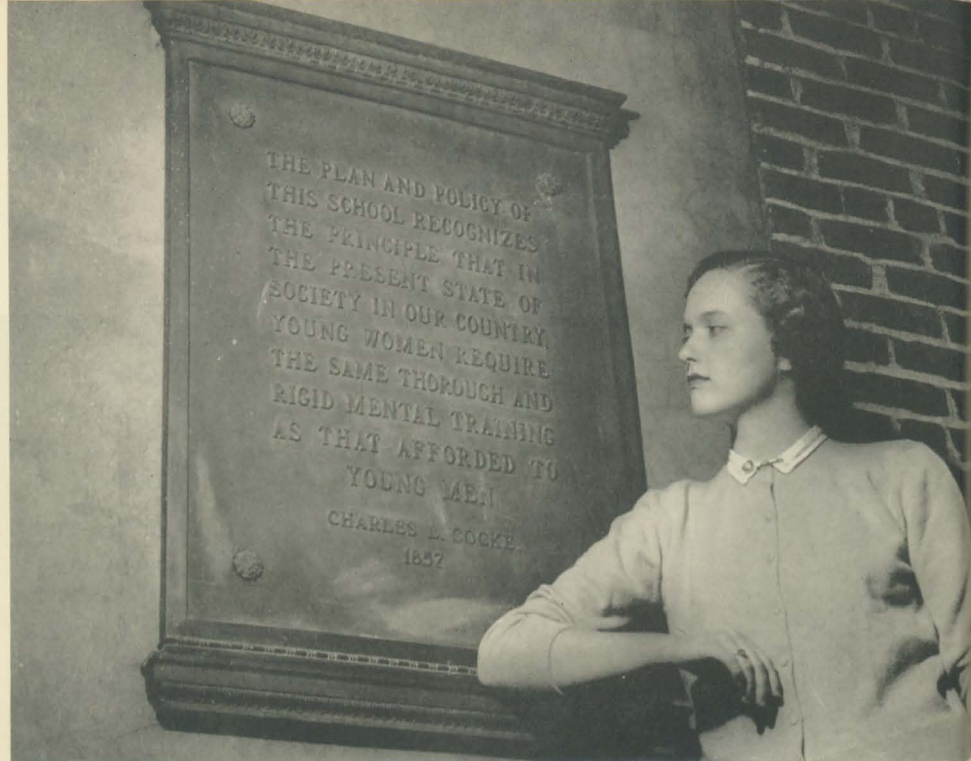 THE PLAN AND POLICY OF
THIS SCHOOL RECOGNIZES
THE PRINCIPLE THAT IN
THE PRESENT STATE OF
SOCIETY IN OUR COUNTRY,
YOUNG WOMEN REQUIRE
THE SAME THOROUGH AND
RIGID MENTAL TRAINING
AS THAT AFFORDED TO
YOUNG MEN
CHARLES L. COCKE
1857